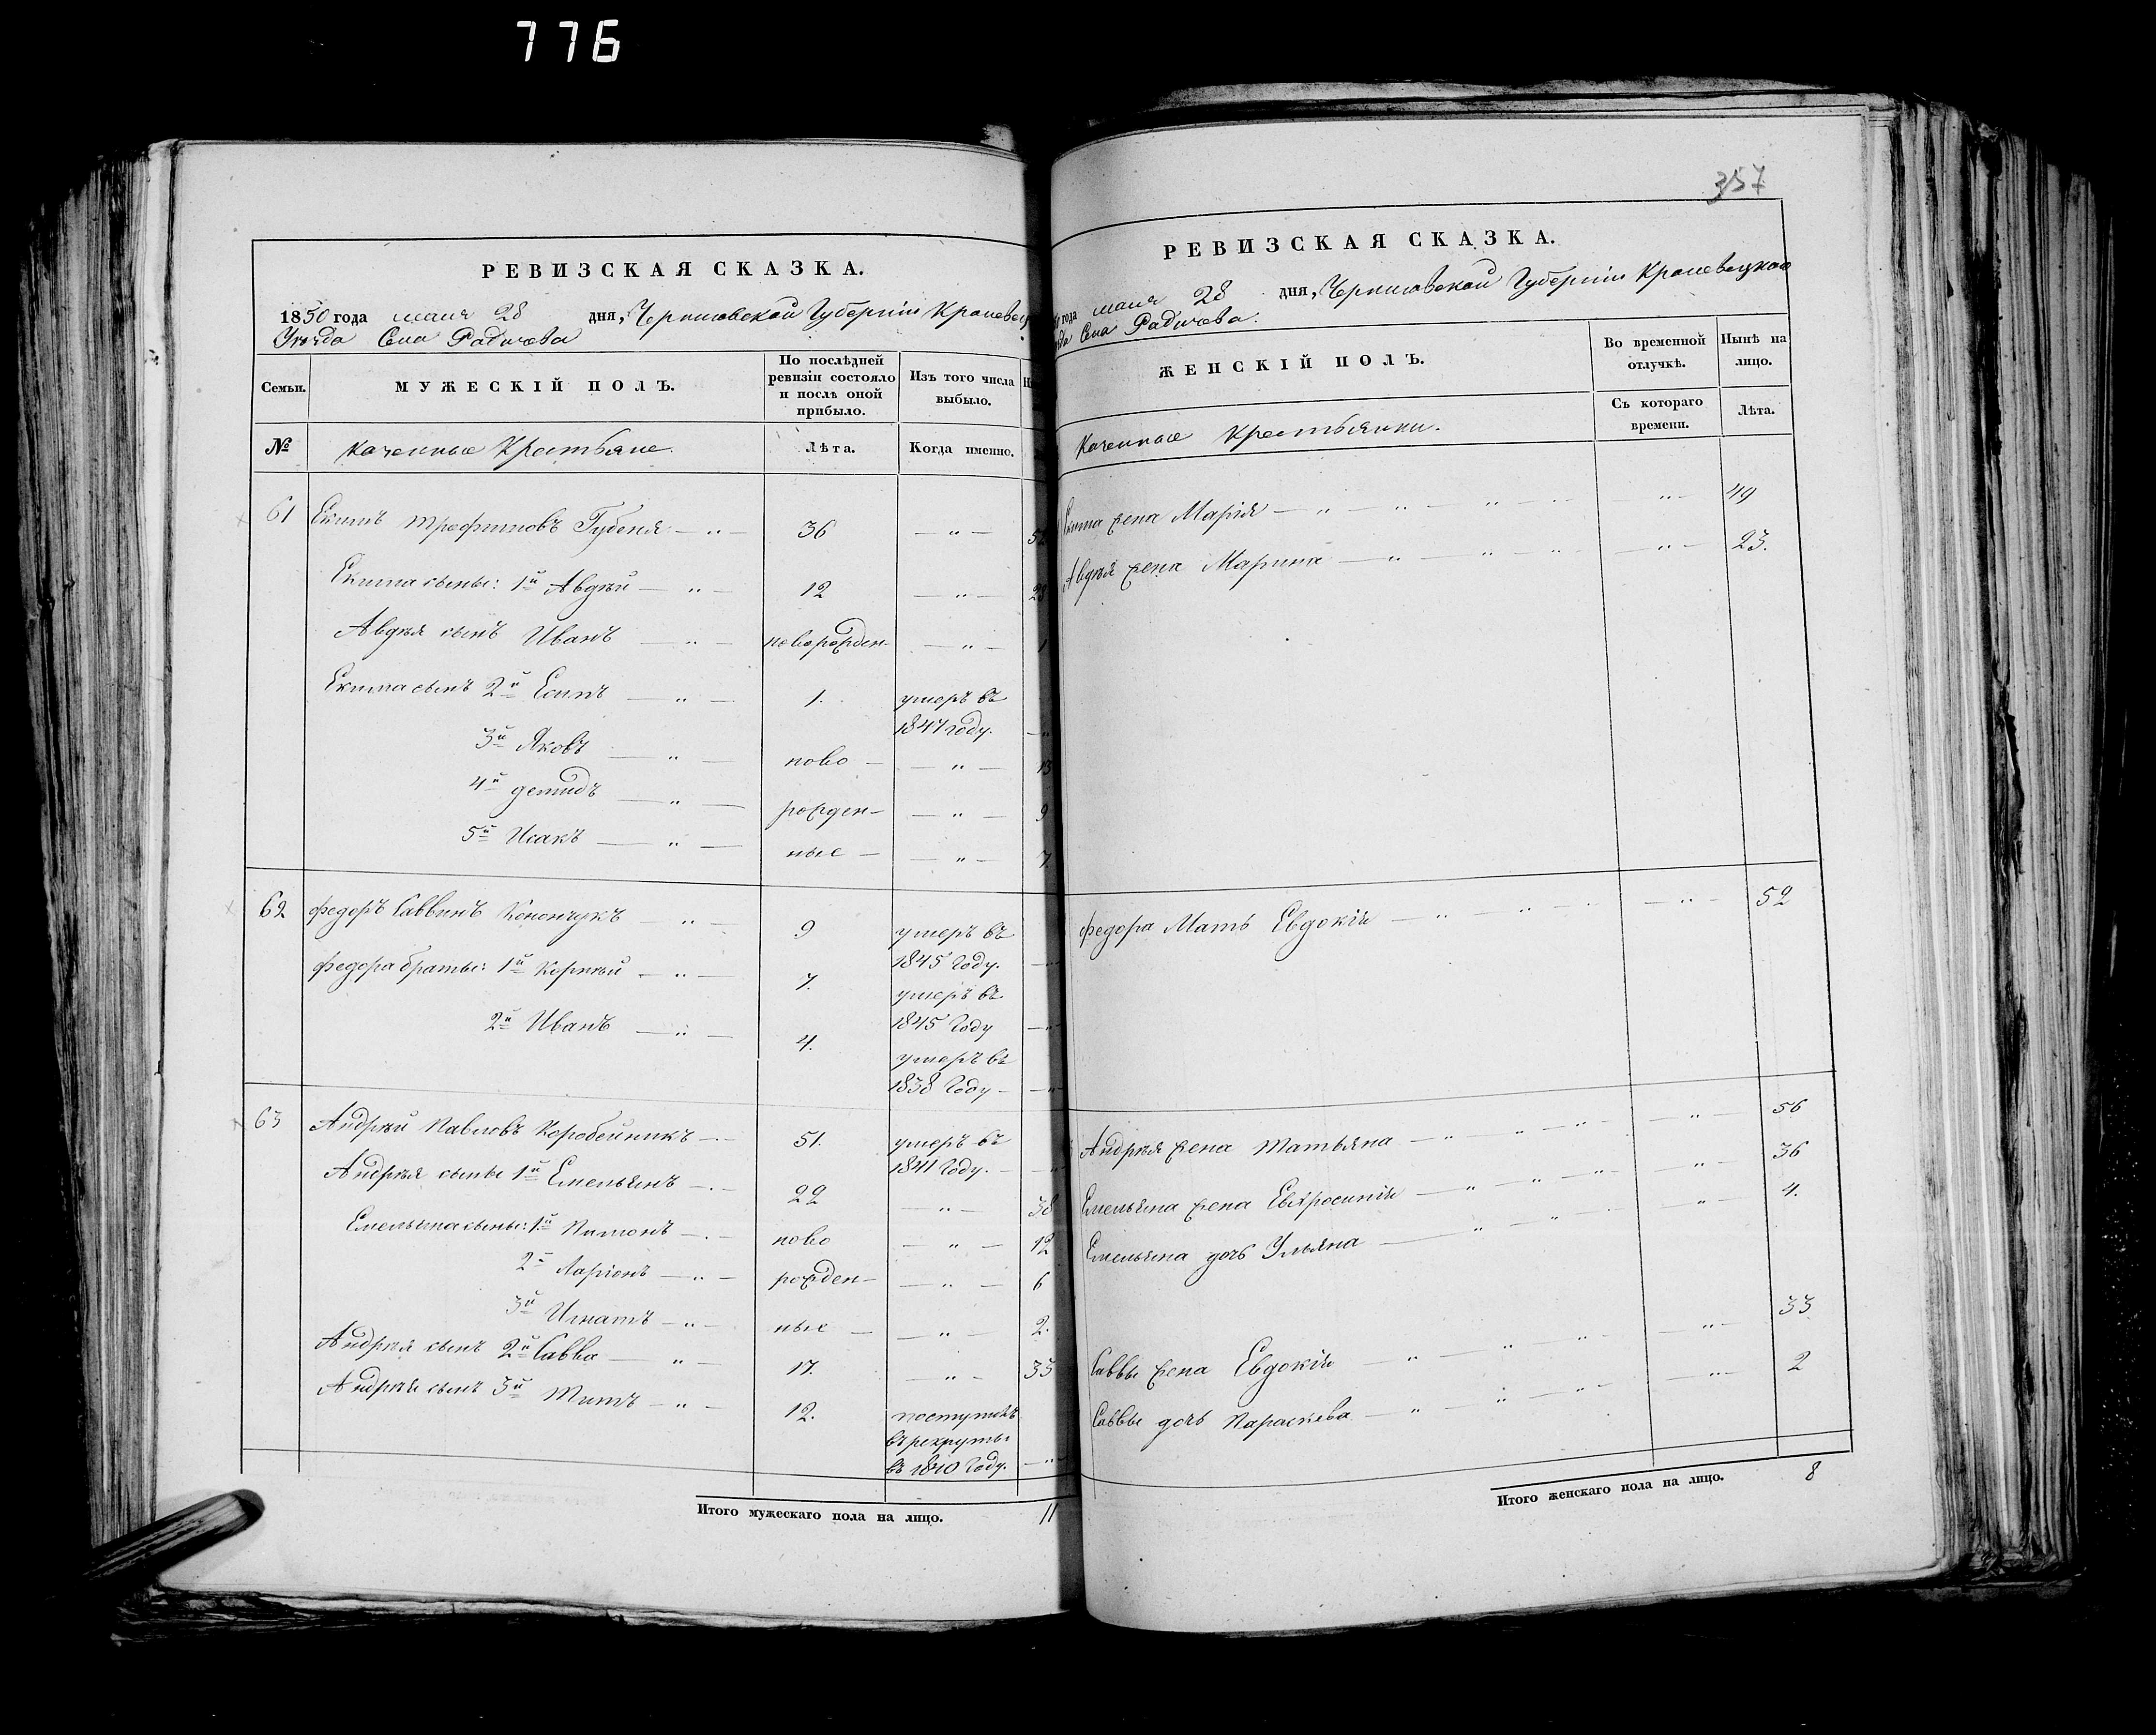 776
РЕВИЗСКАЯ СКАЗКА.
1850 года мая 28 дня, Черниговской Губерніи Кролевец
Уѣзда Села Радичева
Семьи.
МУЖЕСКІЙ ПОЛЪ.
По послѣдней ревизіи состояло и послѣ оной прибыло.
Изъ того числа выбыло.
№
Казенные Крестьяне.
Лѣта.
Когда именно.
61 Екимъ Трофимовъ Губеня — „ — 36 — „ — 52
Екима сыны: 1й Авдѣй — „ — 12 — „ — 28
Авдѣя сынъ Иванъ — „ — новорожден- — „ — 1
Екима сынъ 2й Есипъ — „ — 1. умеръ въ
1847 году. — „
3й Яковъ — „ — ново — — „ — 13
4й Демидъ — „ — рожден — — „ — 9
5й Исакъ — „ — ные — — „ — 7.
62 Федоръ Саввинъ Конончукъ — „ — 9 умеръ въ
1845 году. — „
Федора братья: 1й Корнѣй — „ — 7. умеръ въ
1845 году — „
2й Иванъ — „ — 4. умеръ въ
1838 году — — „
63 Андрѣй Павловъ Коробейникъ — 51. умеръ въ
1841 году. — „
Андрѣя сыны 1й Емельянъ — 22 — „ — 38
Емельяна сыны: 1й Пимонъ — ново — „ — 12
2й Ларіонъ — „ — рожден — — „ — 6
3й Игнатъ — „ — ные — — „ — 2.
Андрѣя сынъ 2й Савва — „ — 17. — „ — 33
Андрѣя сынъ 3й Титъ — „ — 12. поступилъ
въ рекруты
въ 1840 году. — „
Итого мужескаго пола на лицо. 11
357
РЕВИЗСКАЯ СКАЗКА.
года мая 28 дня, Черниговской Губерніи Кролевецкаго
Села Радичева.
ЖЕНСКІЙ ПОЛЪ.
Во временной отлучкѣ.
Нынѣ на лицо.
Казенные Крестьянки.
Съ котораго времени.
Лѣта.
Екима жена Марія — „ — „ — „ — „ — 49
Авдѣя жена Марина — „ — „ — „ — „ — 23.
Федора Мать Евдокія — „ — „ — — „ — 52
Андрѣя жена Татьяна — „ — „ — „ — „ — 56
Емельяна жена Евфросинія — „ — „ — „ — „ — 36
Емельяна дочь Ульяна — „ — „ — „ 4.
Саввы жена Евдокія „ — „ — „ — — „ — 33
Саввы дочь Параскева — „ — „ — „ — — „ — 2
Итого женскаго пола на лицо. 8